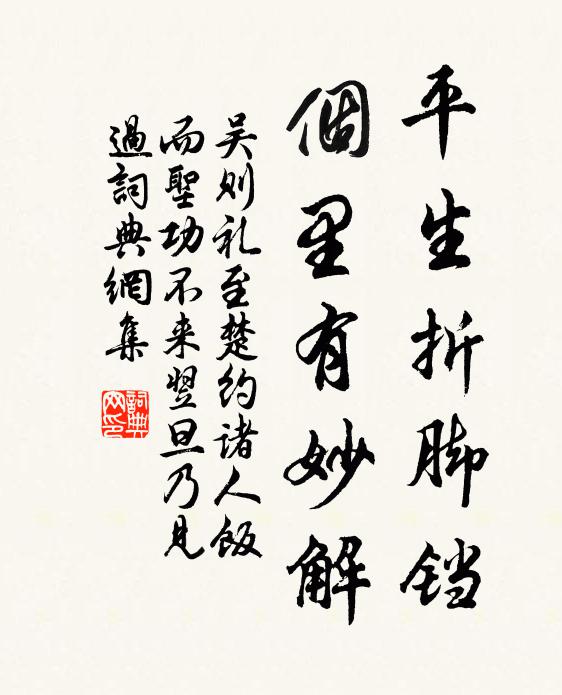 平生折脚铛
個里有妙解
吴则礼至楚约诸人飯
而聖功不来翌旦乃見
過詞典網集
詞典网印